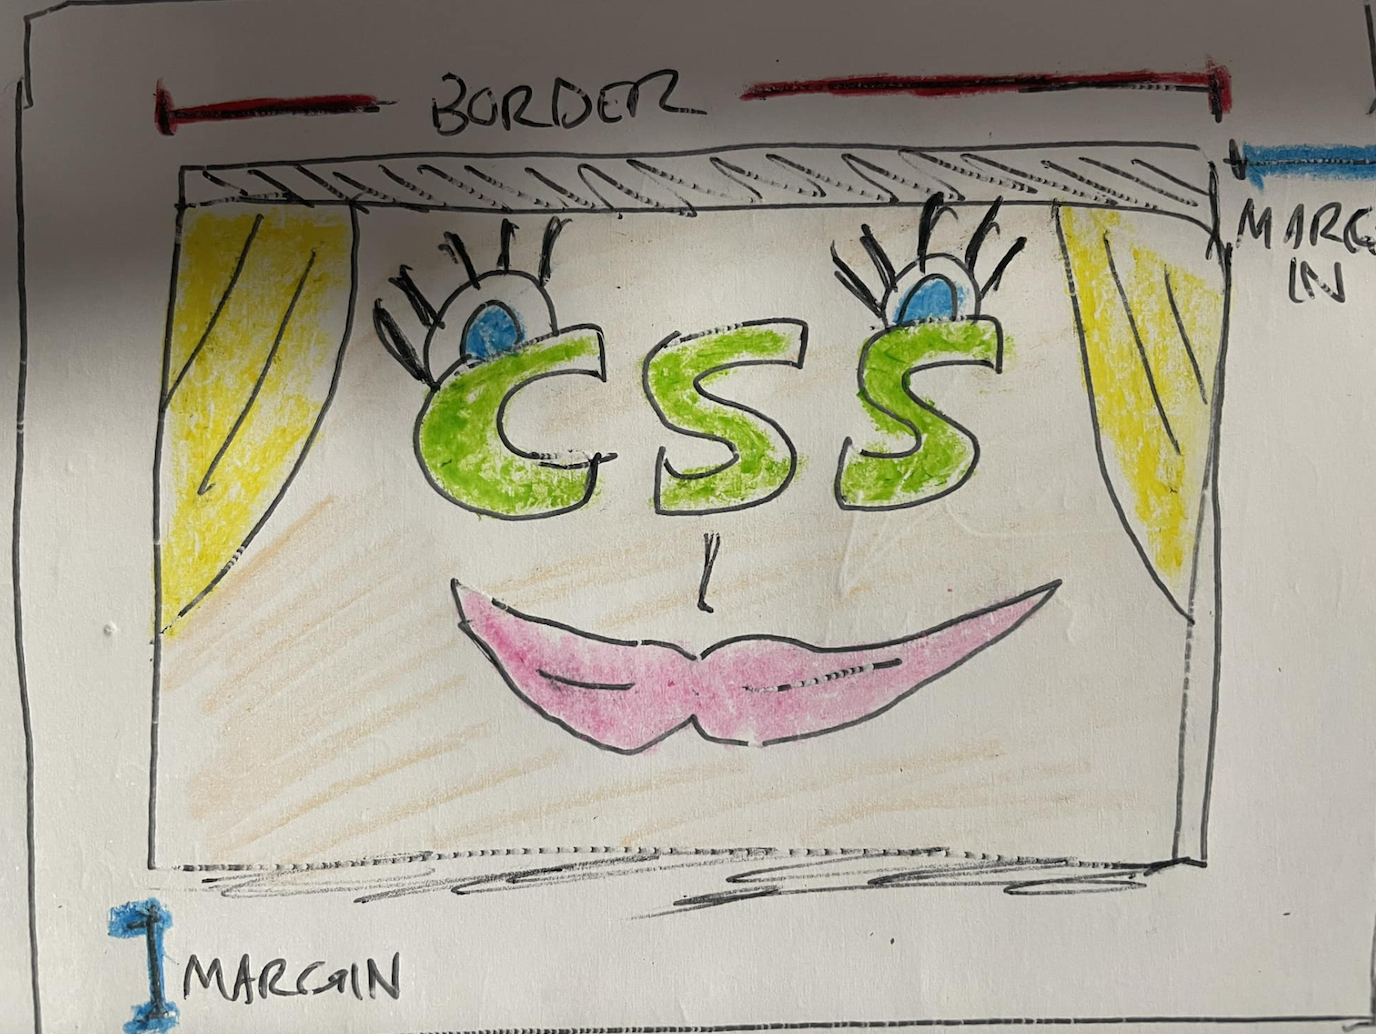 BORDER
MARG
IN
CSS
MARGIN